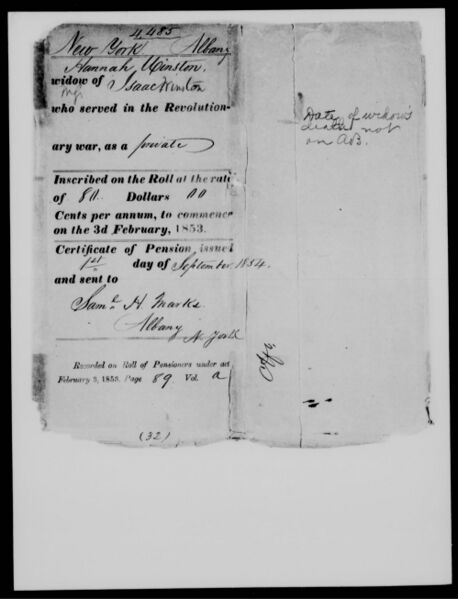 4,485
New York Albany
Hannah Winston,
widow of Isaac Winston
who served in the Revolution-
ary war, as a private
Inscribed on the Roll at the rate
of 80 Dollars 00
Cents per annum, to commence
on the 3d February, 1853.
Certificate of Pension issued
1st day of September 1854.
and sent to
Saml. H. Marks.
Albany N. York
Recorded on Roll of Pensioners under act
February 3, 1853. Page 89. Vol. a
(32)
Date of widow's
death not
on AB.